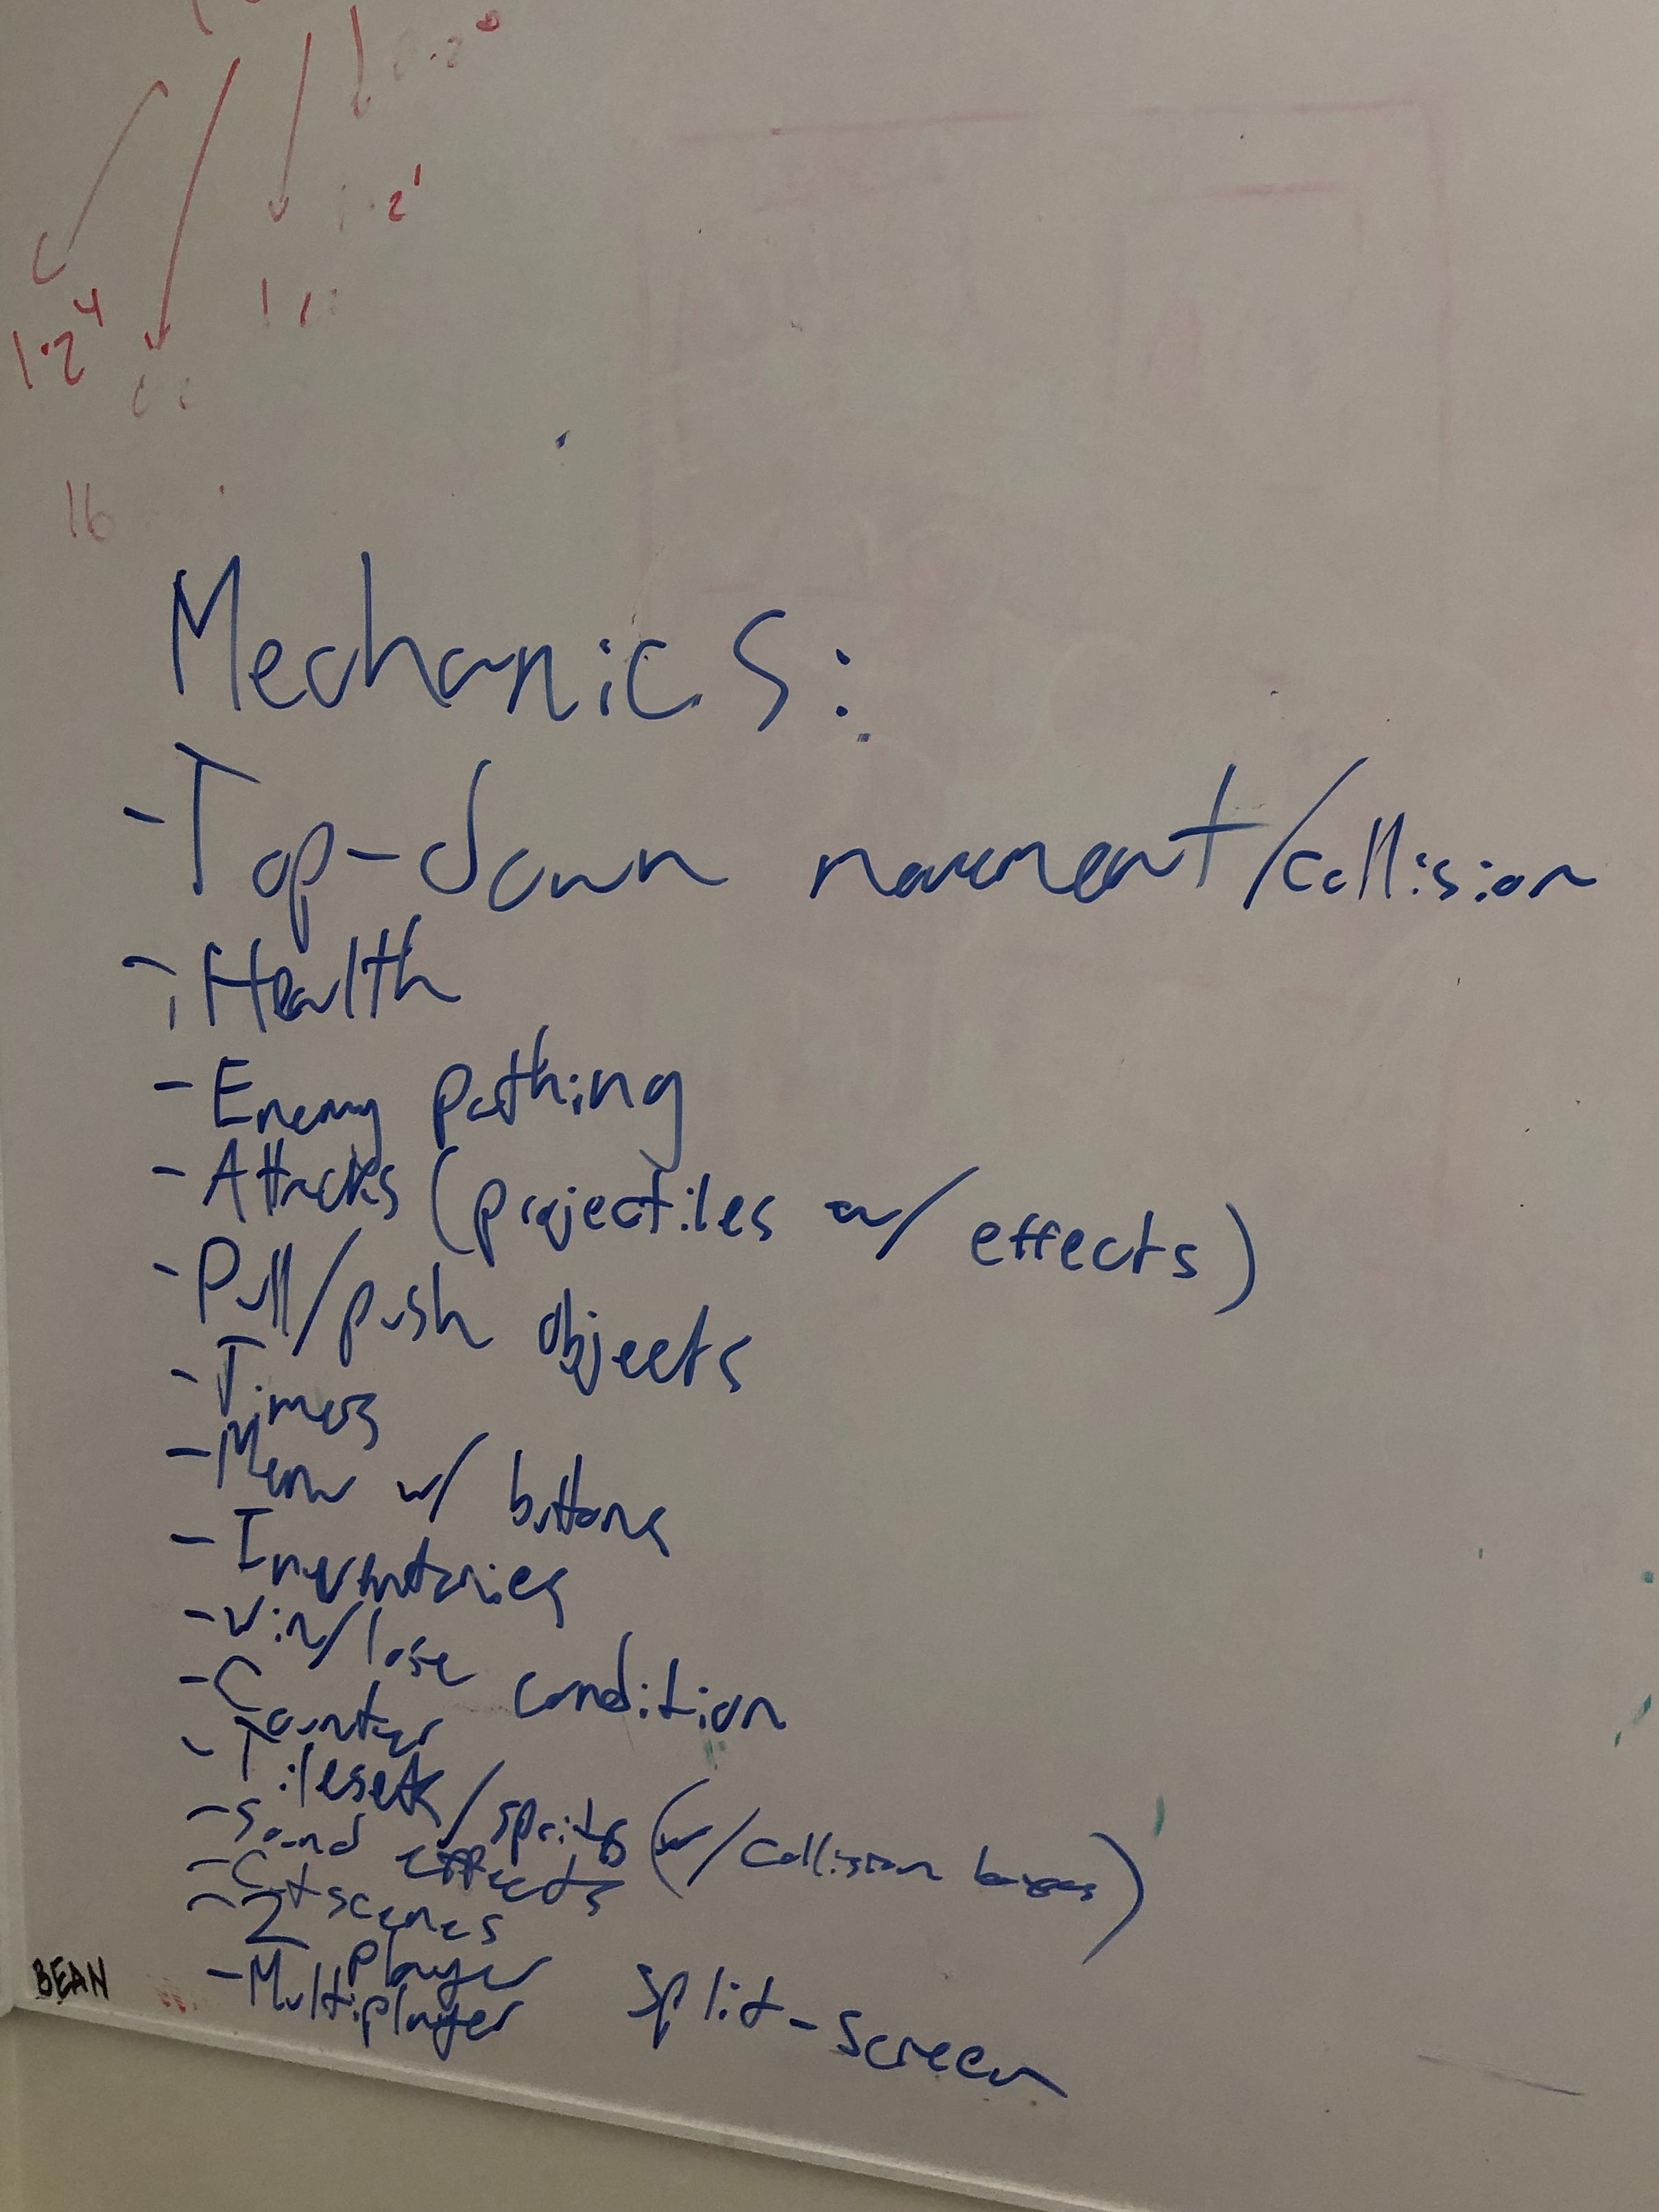 2¹
1·2⁴
16
Mechanics:
-Top-down movement/collision
-Health
-Enemy pathing
-Attacks (projectiles w/ effects)
-Pull/push objects
-Timers
-Menu w/ buttons
-Inventories
-win/lose condition
-Counter
-Tilesets/sprites (w/collision boxes)
-sound effects
-Cutscenes
-2 player split-screen
-Multiplayer
BEAN